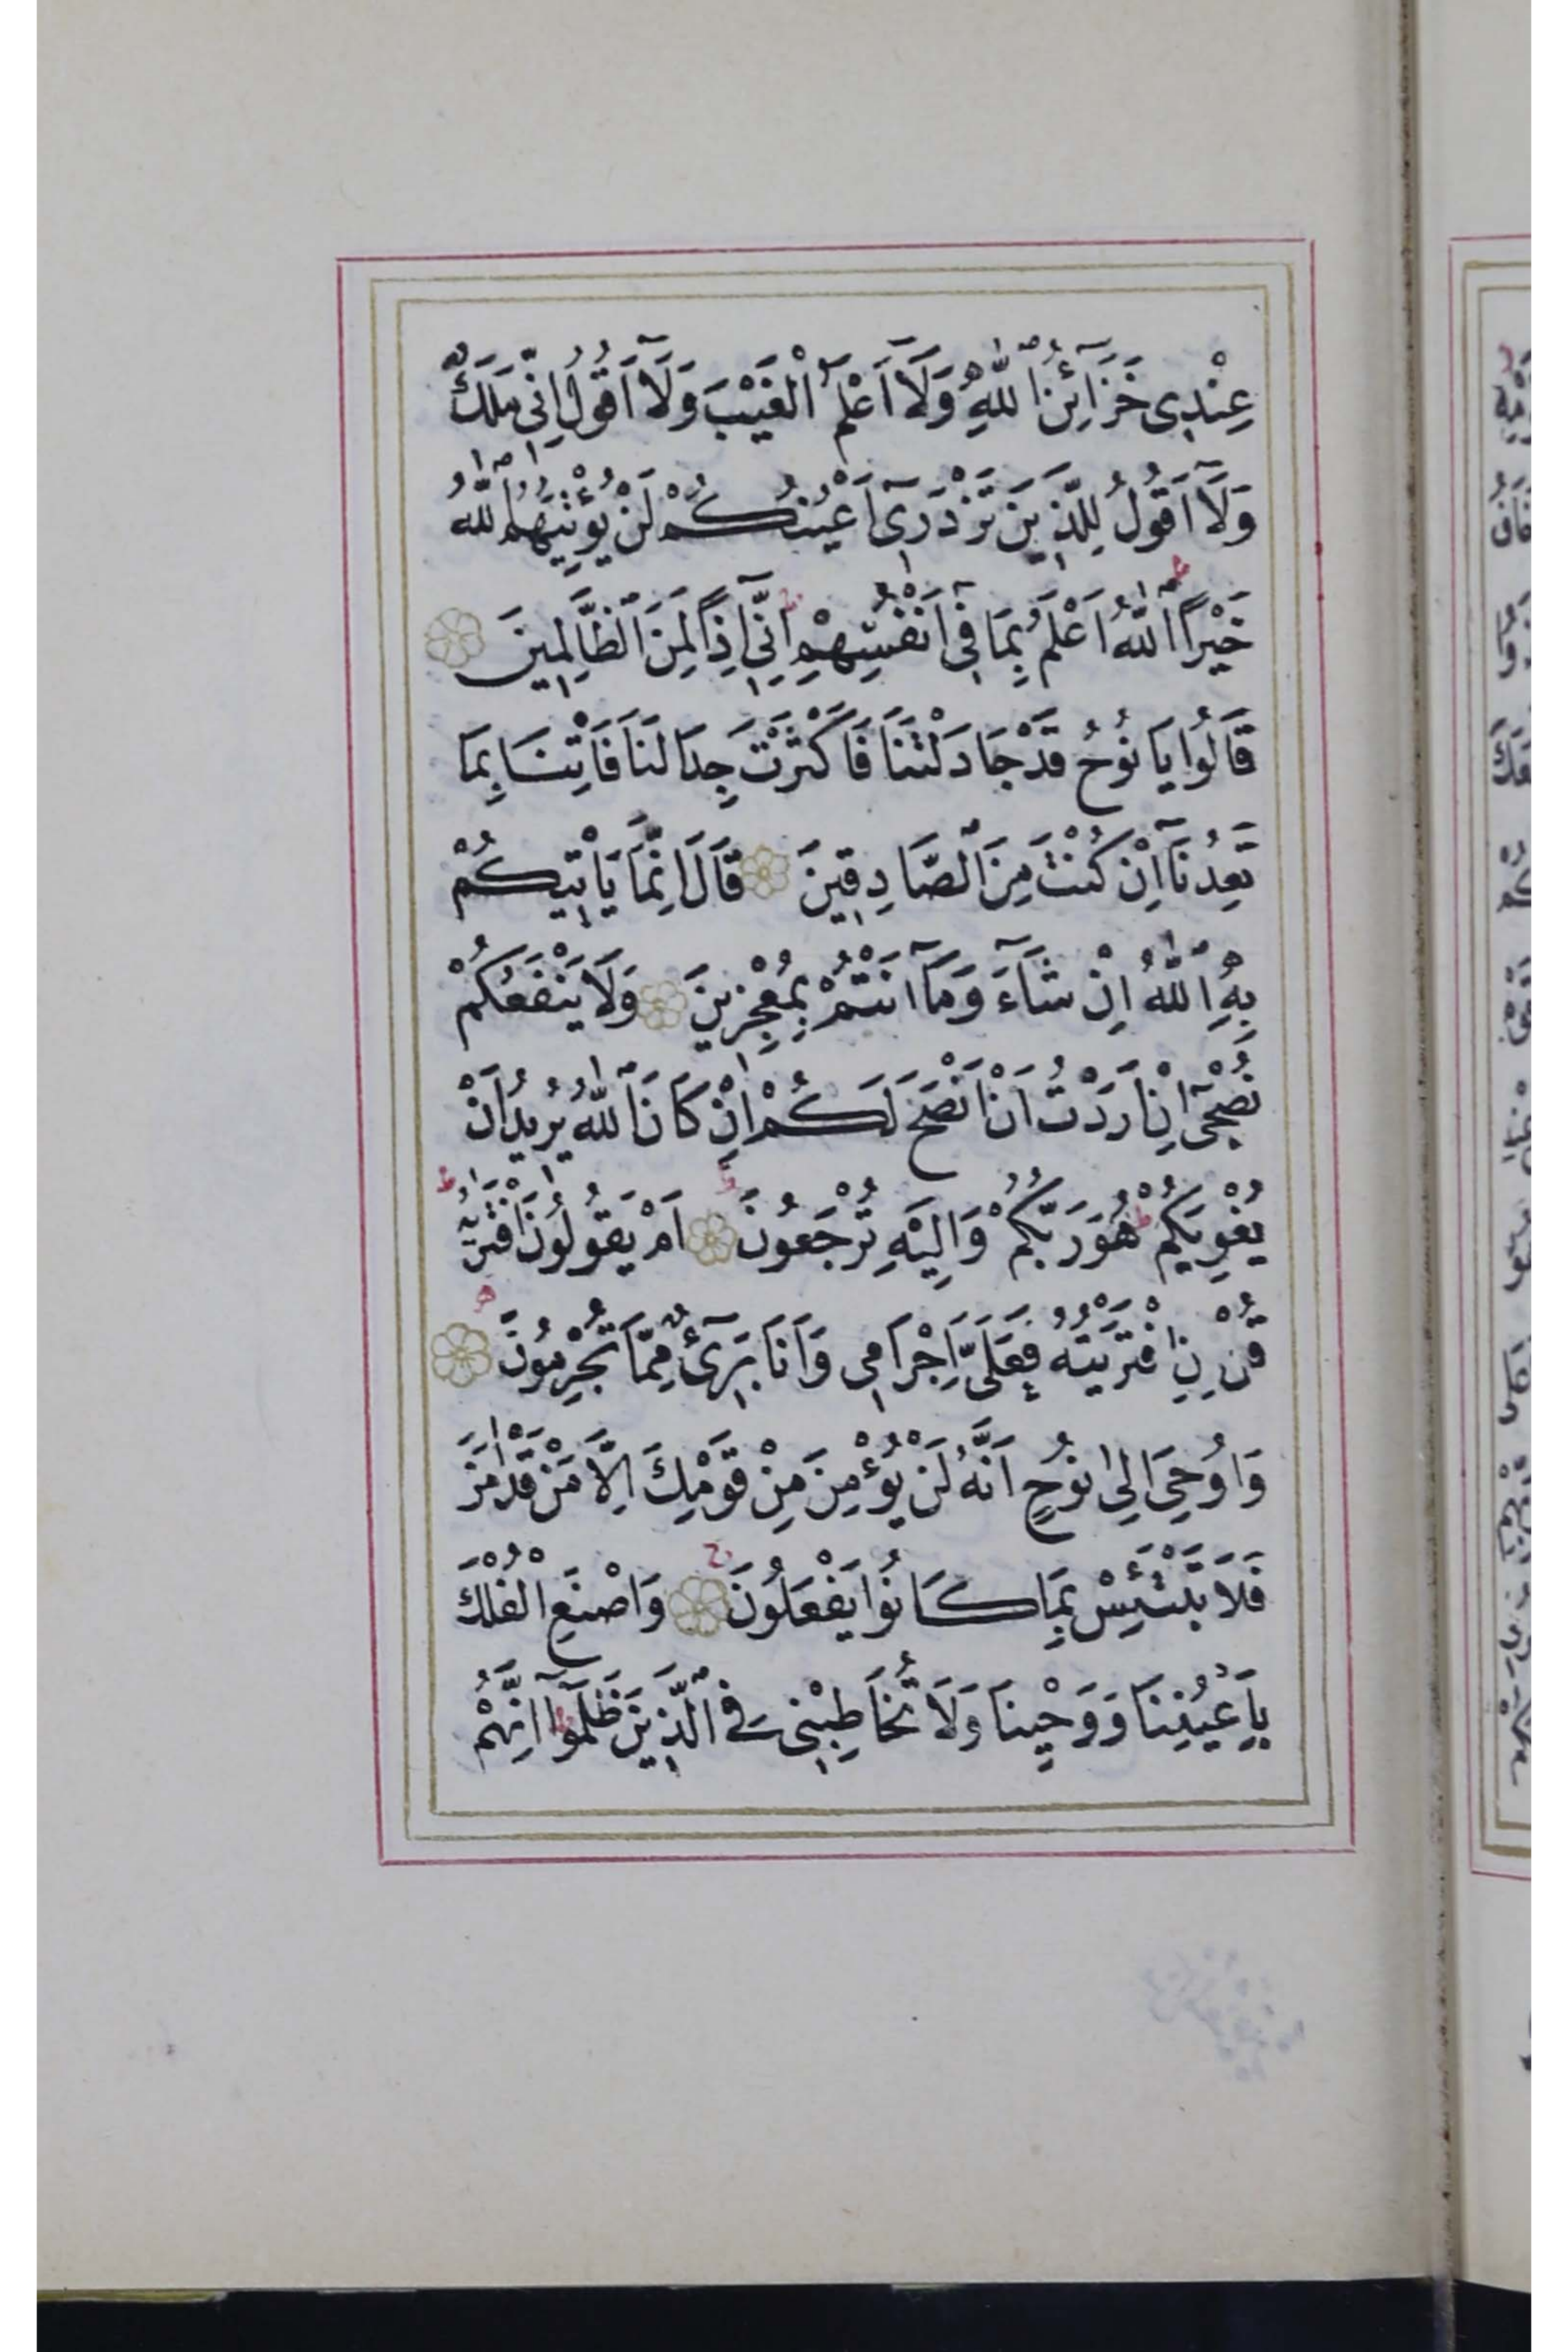 عِنْدِى خَزَآئِنُ ٱللّٰهِ وَلَآ اَعْلَمُ ٱلْغَيْبَ وَلَآ اَقُولُ اِنِّى مَلَكٌ
وَلَآ اَقُولُ لِلَّذِينَ تَزْدَرِىٓ اَعْيُنُكُمْ لَنْ يُؤْتِيَهُمُ ٱللّٰهُ
خَيْرًا ٱللّٰهُ اَعْلَمُ بِمَا فِىٓ اَنْفُسِهِمْ اِنِّىٓ اِذًا لَمِنَ ٱلظَّالِمِينَ
قَالُوا يَا نُوحُ قَدْ جَادَلْتَنَا فَاَكْثَرْتَ جِدَالَنَا فَاْتِنَا بِمَا
تَعِدُنَآ اِنْ كُنْتَ مِنَ ٱلصَّادِقِينَ قَالَ اِنَّمَا يَاْتِيكُمْ
بِهِ ٱللّٰهُ اِنْ شَآءَ وَمَآ اَنْتُمْ بِمُعْجِزِينَ وَلَا يَنْفَعُكُمْ
نُصْحِىٓ اِنْ اَرَدْتُ اَنْ اَنْصَحَ لَكُمْ اِنْ كَانَ ٱللّٰهُ يُرِيدُ اَنْ
يُغْوِيَكُمْ هُوَ رَبُّكُمْ وَاِلَيْهِ تُرْجَعُونَ اَمْ يَقُولُونَ ٱفْتَرٰيهُ
قُلْ اِنِ ٱفْتَرَيْتُهُ فَعَلَىَّ اِجْرَامِى وَاَنَا بَرِىٓءٌ مِمَّا تُجْرِمُونَ
وَاُوحِىَ اِلٰى نُوحٍ اَنَّهُ لَنْ يُؤْمِنَ مِنْ قَوْمِكَ اِلَّا مَنْ قَدْ اٰمَنَ
فَلَا تَبْتَئِسْ بِمَا كَانُوا يَفْعَلُونَ وَاصْنَعِ الْفُلْكَ
بِاَعْيُنِنَا وَوَحْيِنَا وَلَا تُخَاطِبْنِى فِى ٱلَّذِينَ ظَلَمُوٓا اِنَّهُمْ